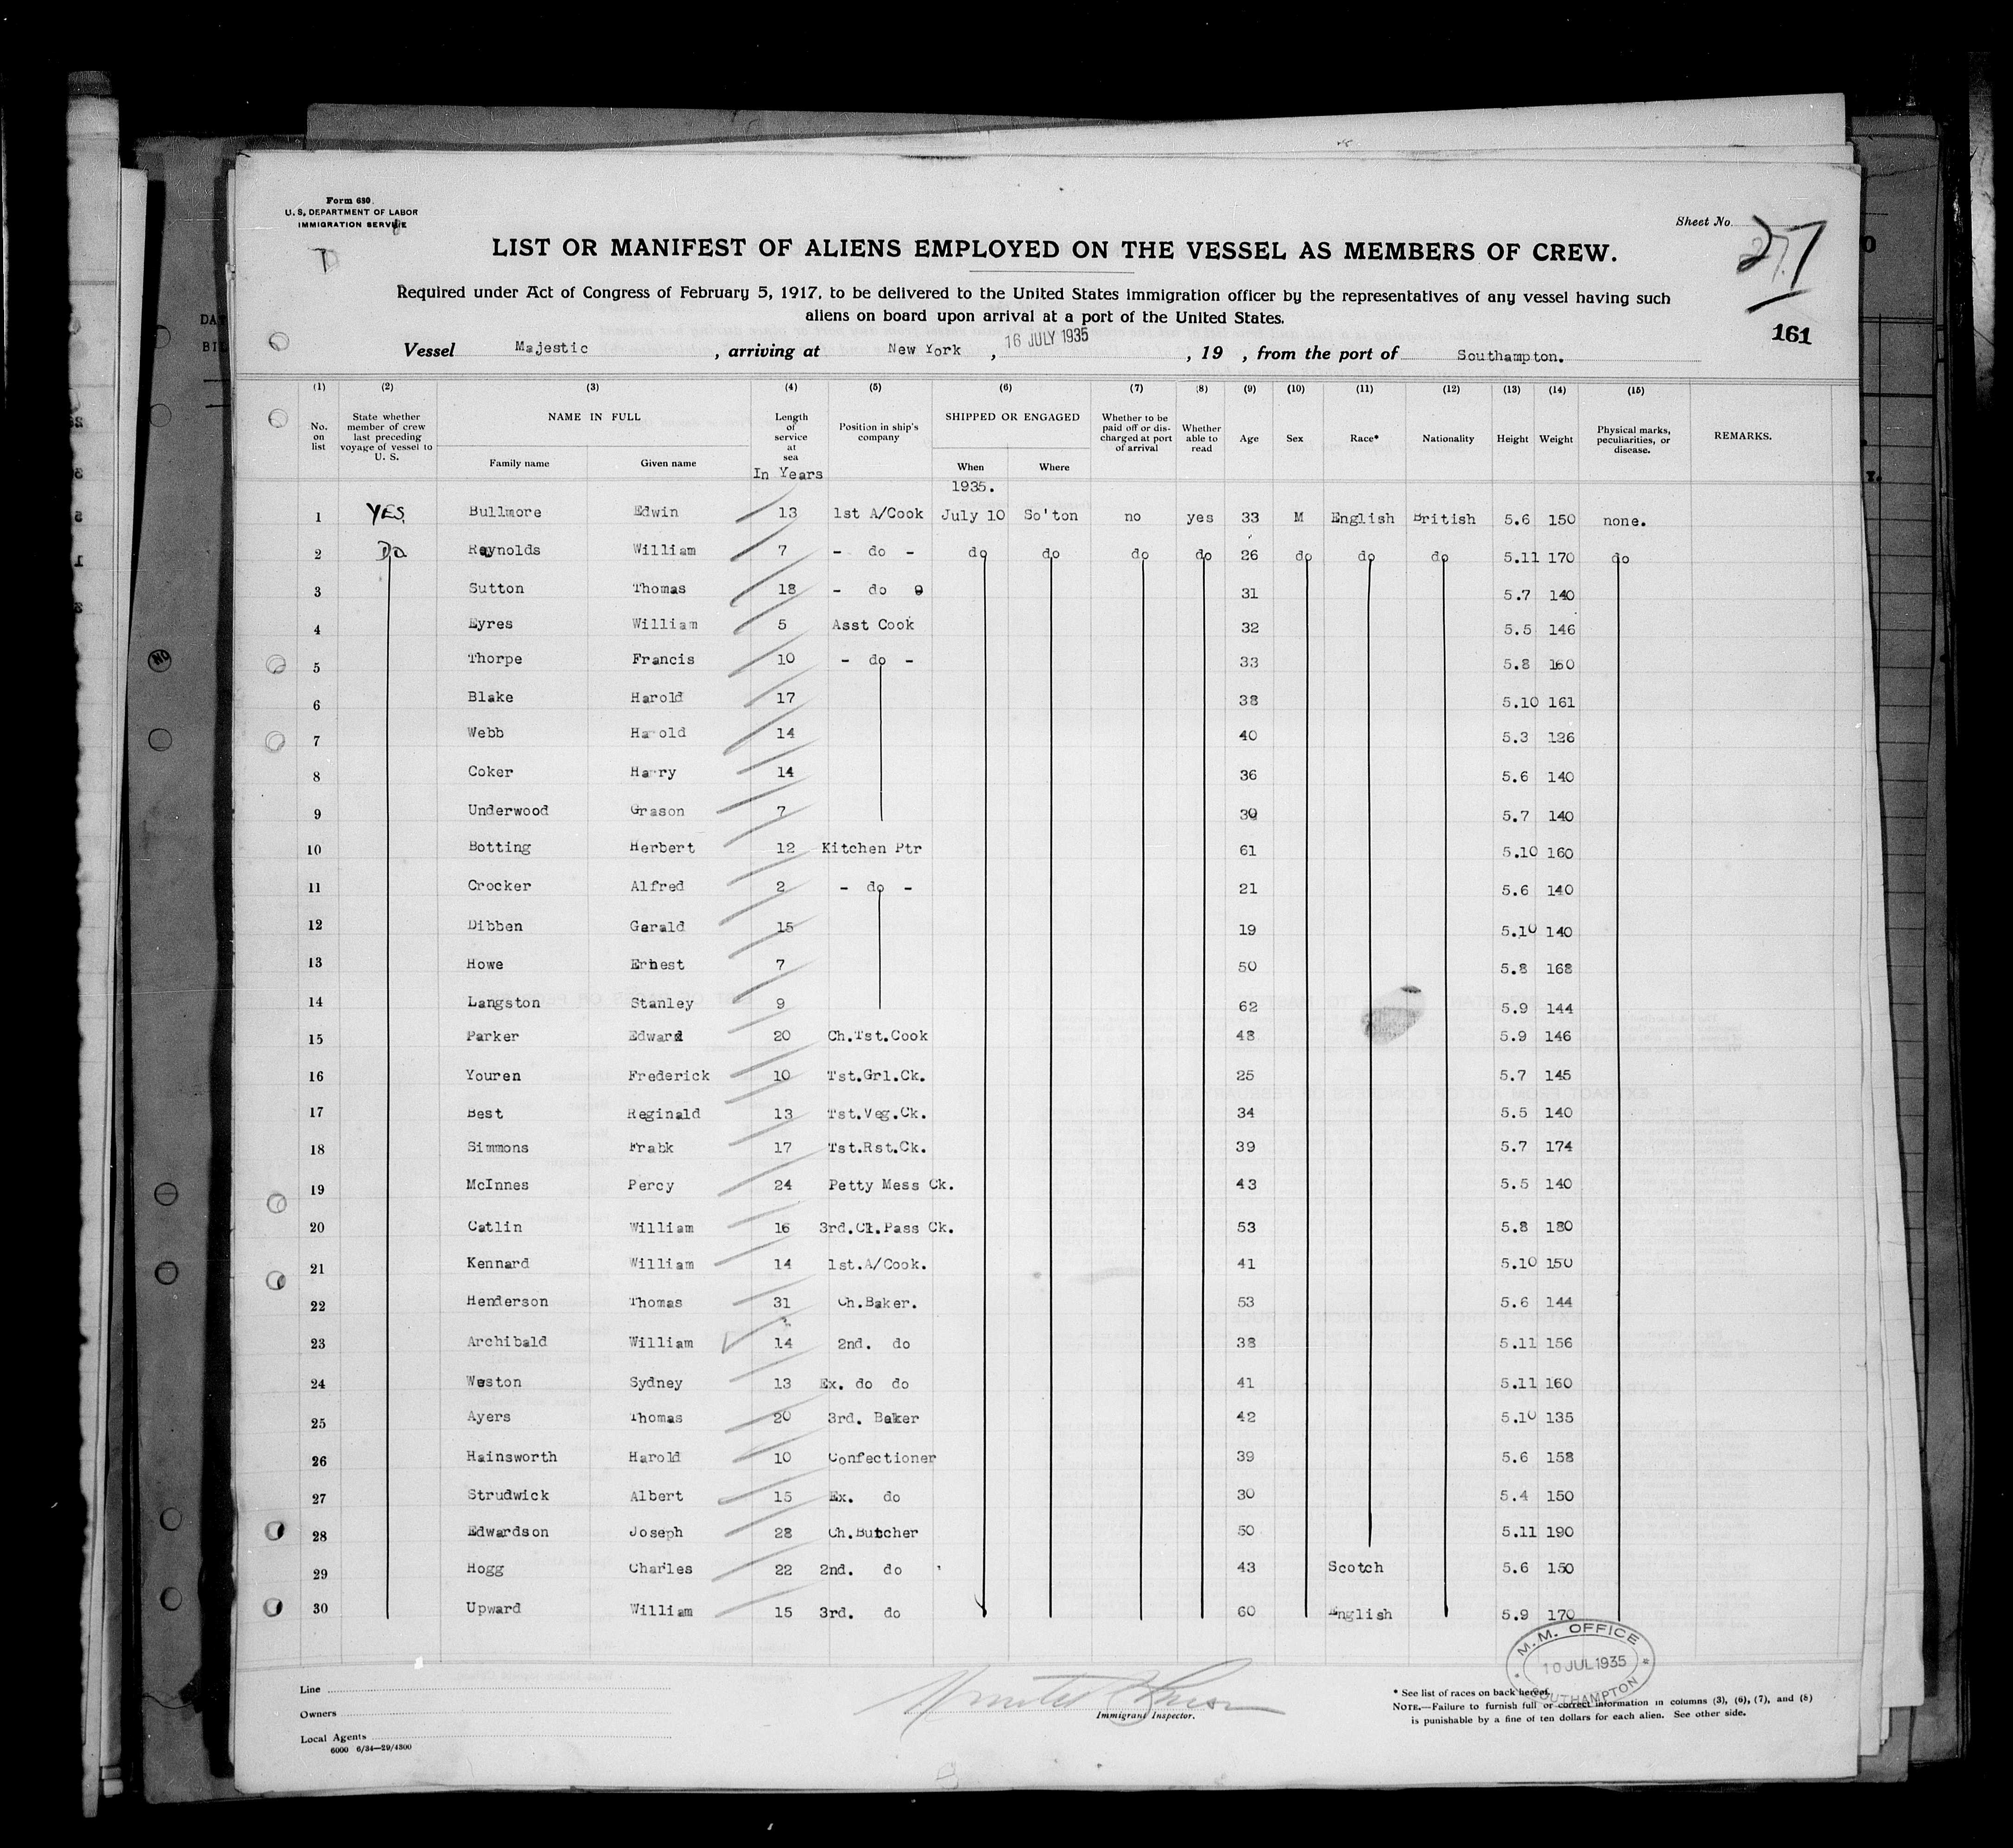 Form 680
U. S. DEPARTMENT OF LABOR
IMMIGRATION SERVICE
Sheet No. 27
LIST OR MANIFEST OF ALIENS EMPLOYED ON THE VESSEL AS MEMBERS OF CREW.
Required under Act of Congress of February 5, 1917, to be delivered to the United States immigration officer by the representatives of any vessel having such
aliens on board upon arrival at a port of the United States.
161
Vessel Majestic , arriving at New York , 16 JULY 1935 , 19 , from the port of Southampton.
(1) (2) (3) (4) (5) (6) (7) (8) (9) (10) (11) (12) (13) (14) (15)
No. on list State whether member of crew last preceding voyage of vessel to U. S. NAME IN FULL Family name Given name Length of service at sea In Years Position in ship's company SHIPPED OR ENGAGED When Where Whether to be paid off or discharged at port of arrival Whether able to read Age Sex Race* Nationality Height Weight Physical marks, peculiarities, or disease. REMARKS.
1935.
1 YES. Bullmore Edwin 13 1st A/Cook July 10 So'ton no yes 33 M English British 5.6 150 none.
2 Do Reynolds William 7 - do - do do do do 26 do do do 5.11 170 do
3 Sutton Thomas 18 - do 9 31 5.7 140
4 Eyres William 5 Asst Cook 32 5.5 146
5 Thorpe Francis 10 - do - 33 5.8 160
6 Blake Harold 17 38 5.10 161
7 Webb Harold 14 40 5.3 126
8 Coker Harry 14 36 5.6 140
9 Underwood Grason 7 30 5.7 140
10 Botting Herbert 12 Kitchen Ptr 61 5.10 160
11 Crocker Alfred 2 - do - 21 5.6 140
12 Dibben Gerald 15 19 5.10 140
13 Howe Ernest 7 50 5.8 168
14 Langston Stanley 9 62 5.9 144
15 Parker Edward 20 Ch.Tst.Cook 48 5.9 146
16 Youren Frederick 10 Tst.Grl.Ck. 25 5.7 145
17 Best Reginald 13 Tst.Veg.Ck. 34 5.5 140
18 Simmons Frabk 17 Tst.Rst.Ck. 39 5.7 174
19 McInnes Percy 24 Petty Mess Ck. 43 5.5 140
20 Catlin William 16 3rd.Cl.Pass Ck. 53 5.8 180
21 Kennard William 14 1st.A/Cook. 41 5.10 150
22 Henderson Thomas 31 Ch.Baker. 53 5.6 144
23 Archibald William 14 2nd. do 38 5.11 156
24 Weston Sydney 13 Ex. do do 41 5.11 160
25 Ayers Thomas 20 3rd. Baker 42 5.10 135
26 Hainsworth Harold 10 Confectioner 39 5.6 158
27 Strudwick Albert 15 Ex. do 30 5.4 150
28 Edwardson Joseph 28 Ch.Butcher 50 5.11 190
29 Hogg Charles 22 2nd. do 43 Scotch 5.6 150
30 Upward William 15 3rd. do 60 English 5.9 170
M. M. OFFICE
10 JUL 1935
SOUTHAMPTON
Line
Owners
Local Agents
6000 6/34—29/4300
Immigrant Inspector.
* See list of races on back hereof.
NOTE.—Failure to furnish full or correct information in columns (3), (6), (7), and (8)
is punishable by a fine of ten dollars for each alien. See other side.